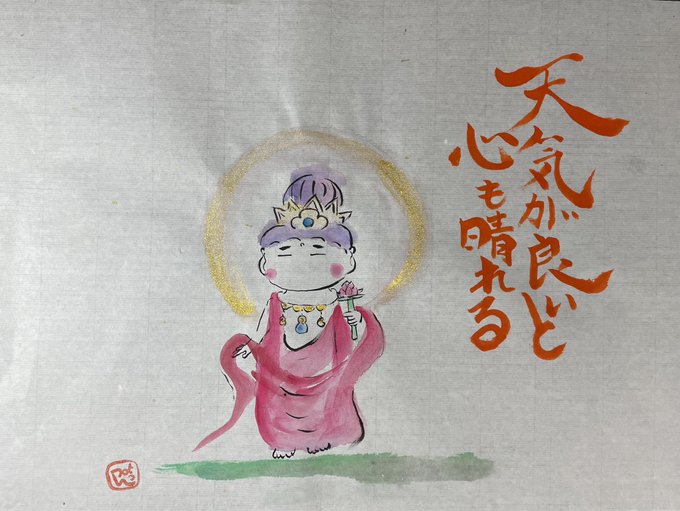 天気が良いと
心も晴れる